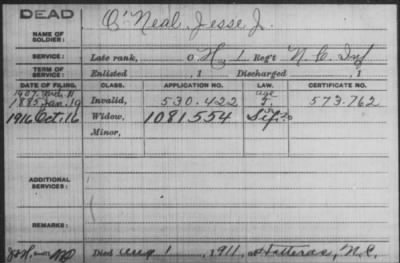 DEAD
NAME OF SOLDIER: O'Neal, Jesse J.
SERVICE: Late rank, Reg't N. C. Inf
TERM OF SERVICE: Enlisted , 1 Discharged , 1
DATE OF FILING. CLASS. APPLICATION NO. LAW. CERTIFICATE NO.
1907
1885 Jan. 19 Invalid, 530.422 573.762
1916 Oct. 16 Widow, 1081554
Minor,
ADDITIONAL SERVICES:
REMARKS:
Died Aug 1, 1911, at Hatteras, N.C.